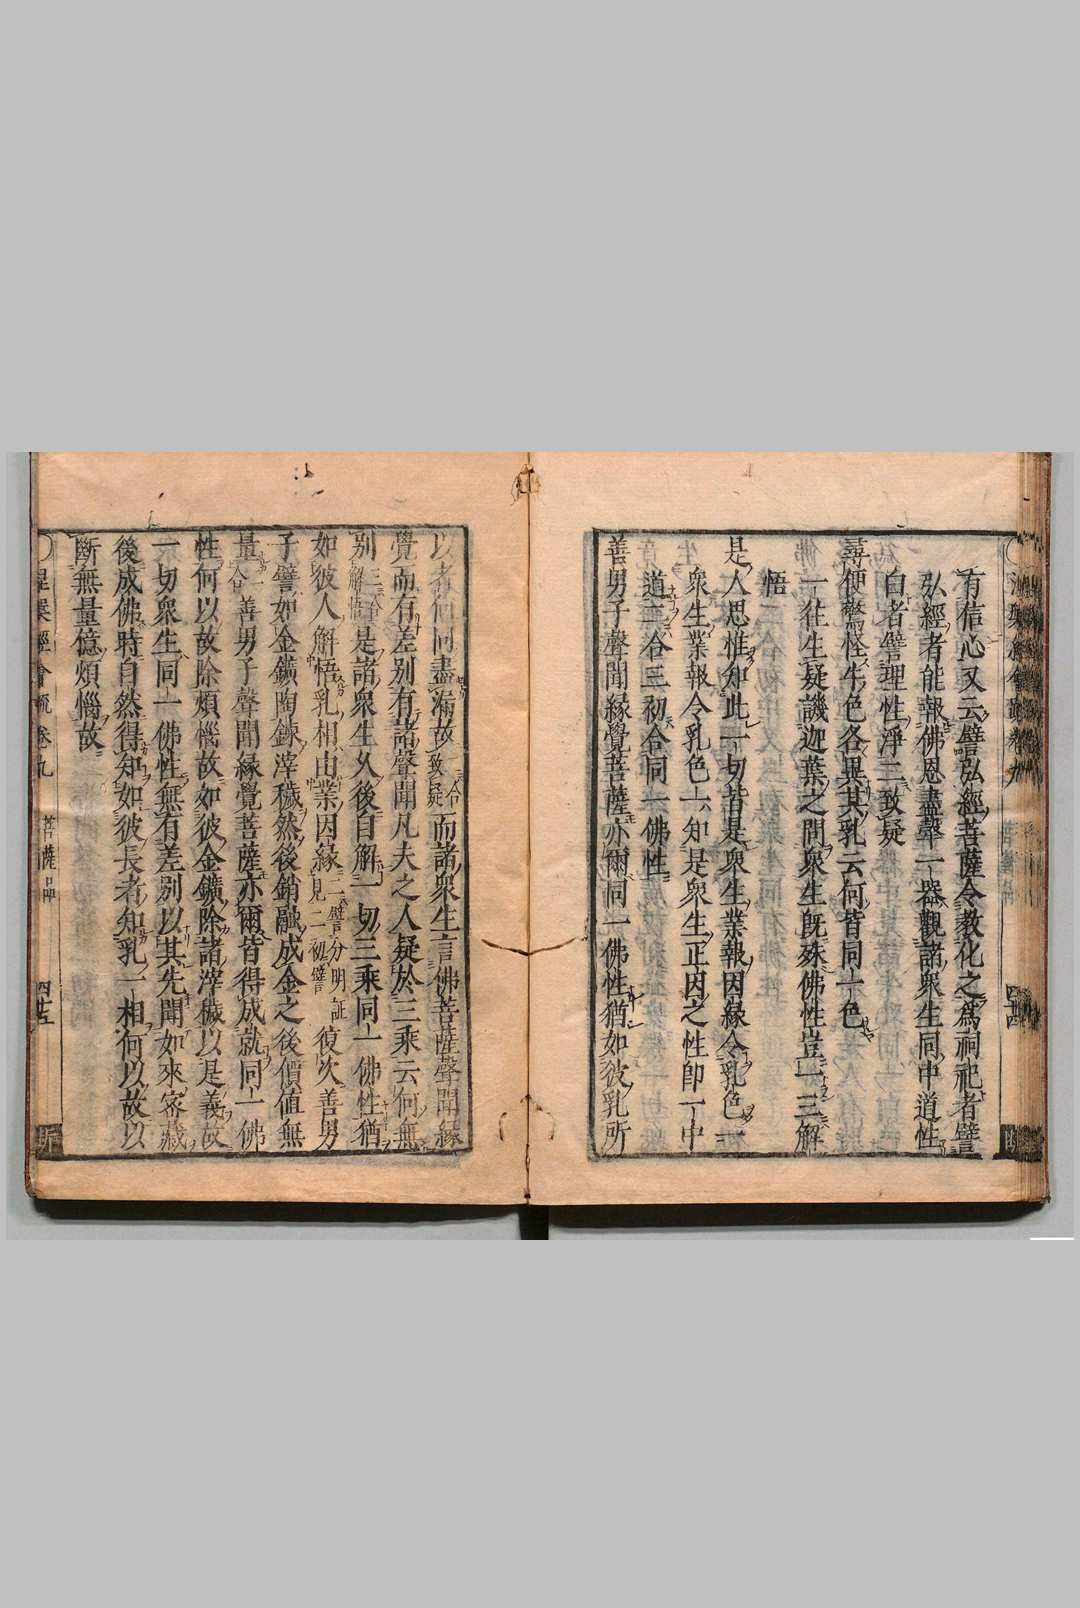 有信心又云譬弘經菩薩令教化之爲祠祀者譬
弘經者能報佛恩盡聲一器觀諸衆生同中道性
白者譬理性淨二致疑
尋便驚怪牛色各異其乳云何皆同一色
一往生疑譏迦葉之問衆生既殊佛性豈一三解
悟
是人思惟知此一切皆是衆生業報因緣令乳色一
衆生業報令乳色一六知是衆生正因之性即一中
道二合三初合同一佛性
善男子聲聞緣覺菩薩亦爾同一佛性猶如彼乳所
以者何同盡漏故二合致疑而諸衆生言佛菩薩聲聞緣
覺而有差別有諸聲聞凡夫之人疑於三乘云何無
別三合解悟是諸衆生久後自解一切三乘同一佛性猶
如彼人解悟乳相由業因緣二譬分明証見二初譬復次善男
子譬如金鑛陶鍊滓穢然後銷融成金之後價值無
量合一善男子聲聞緣覺菩薩亦爾皆得成就同一佛
性何以故除煩惱故如彼金鑛除諸滓穢以是義故
一切衆生同一佛性無有差別以其先聞如來密藏
後成佛時自然得知如彼長者知乳一相何以故以
斷無量億煩惱故
涅槃經會疏卷九 菩薩品 四十五